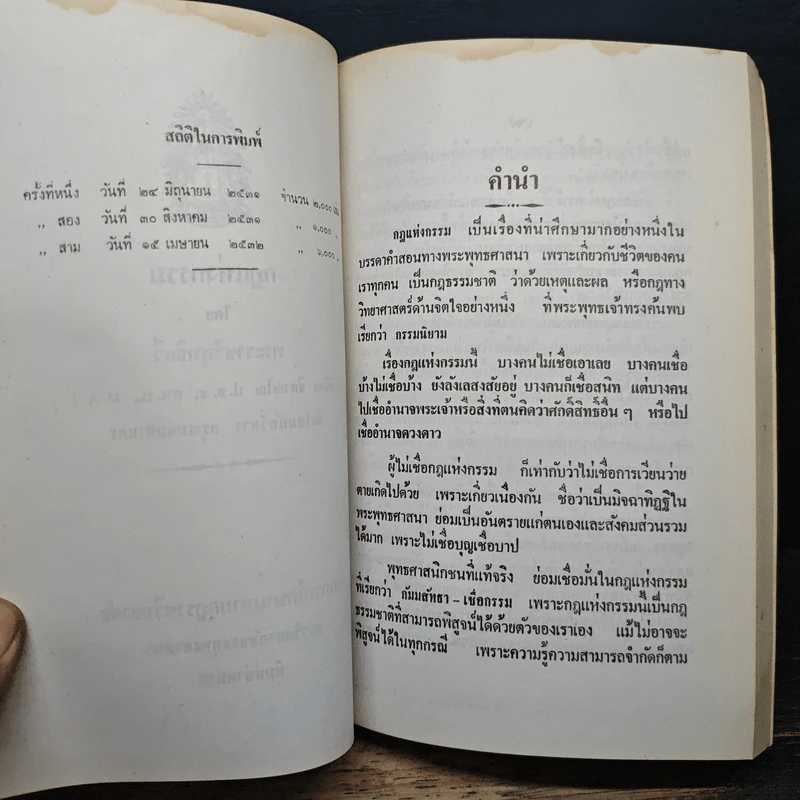 สถิติในการพิมพ์
ครั้งที่หนึ่ง วันที่ ๒๔ มิถุนายน ๒๕๓๑ จำนวน ๒,๐๐๐
„ สอง วันที่ ๓๐ สิงหาคม ๒๕๓๑ „ ๑,๐๐๐ „
„ สาม วันที่ ๑๕ เมษายน ๒๕๓๒ „ ๖,๐๐๐ „
คำนำ
กฎแห่งกรรม เป็นเรื่องที่น่าศึกษามากอย่างหนึ่งใน
บรรดาคำสอนทางพระพุทธศาสนา เพราะเกี่ยวกับชีวิตของคน
เราทุกคน เป็นกฎธรรมชาติ ว่าด้วยเหตุและผล หรือกฎทาง
วิทยาศาสตร์ด้านจิตใจอย่างหนึ่ง ที่พระพุทธเจ้าทรงค้นพบ
เรียกว่า กรรมนิยาม
เรื่องกฎแห่งกรรมนี้ บางคนไม่เชื่อเอาเลย บางคนเชื่อ
บ้างไม่เชื่อบ้าง ยังลังเลสงสัยอยู่ บางคนก็เชื่อสนิท แต่บางคน
ไปเชื่ออำนาจพระเจ้าหรือสิ่งที่ตนคิดว่าศักดิ์สิทธิ์อื่น ๆ หรือไป
เชื่ออำนาจดวงดาว
ผู้ไม่เชื่อกฎแห่งกรรม ก็เท่ากับว่าไม่เชื่อการเวียนว่าย
ตายเกิดไปด้วย เพราะเกี่ยวเนื่องกัน ชื่อว่าเป็นมิจฉาทิฏฐิใน
พระพุทธศาสนา ย่อมเป็นอันตรายแก่ตนเองและสังคมส่วนรวม
ได้มาก เพราะไม่เชื่อบุญเชื่อบาป
พุทธศาสนิกชนที่แท้จริง ย่อมเชื่อมั่นในกฎแห่งกรรม
ที่เรียกว่า กัมมสัทธา – เชื่อกรรม เพราะกฎแห่งกรรมนี้เป็นกฎ
ธรรมชาติที่สามารถพิสูจน์ได้ด้วยตัวของเราเอง แม้ไม่อาจจะ
พิสูจน์ได้ในทุกกรณี เพราะความรู้ความสามารถจำกัดก็ตาม